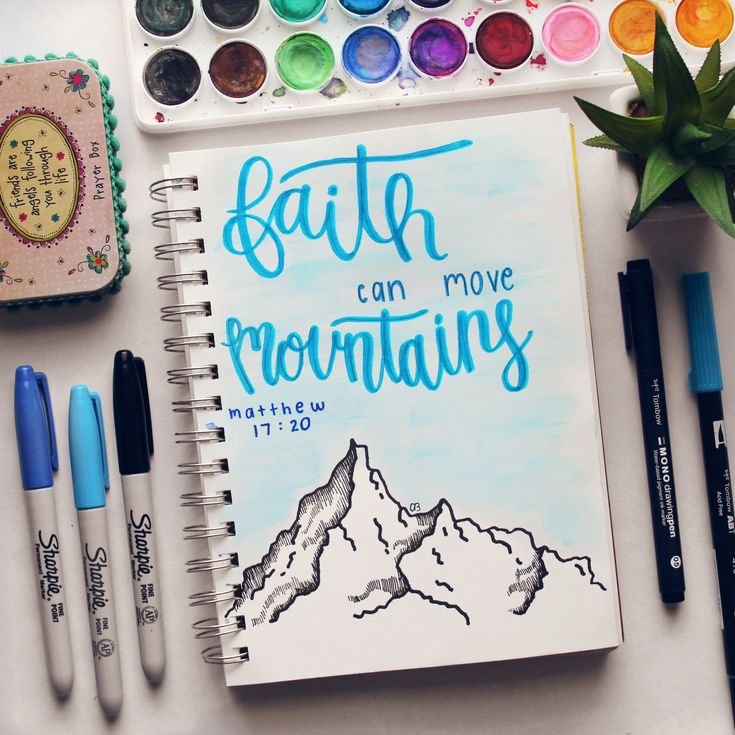 Friends are
angels following
you through
life
Prayer Box
faith
can move
mountains
matthew
17:20
03
Sharpie
FINE
POINT
Sharpie
FINE
POINT
Sharpie
FINE
POINT
AP
Tombow
MONO drawingpen
Tombow ABT
Acid Free